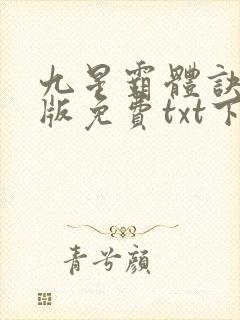 九星霸體訣
版免費txt下
青兮顏